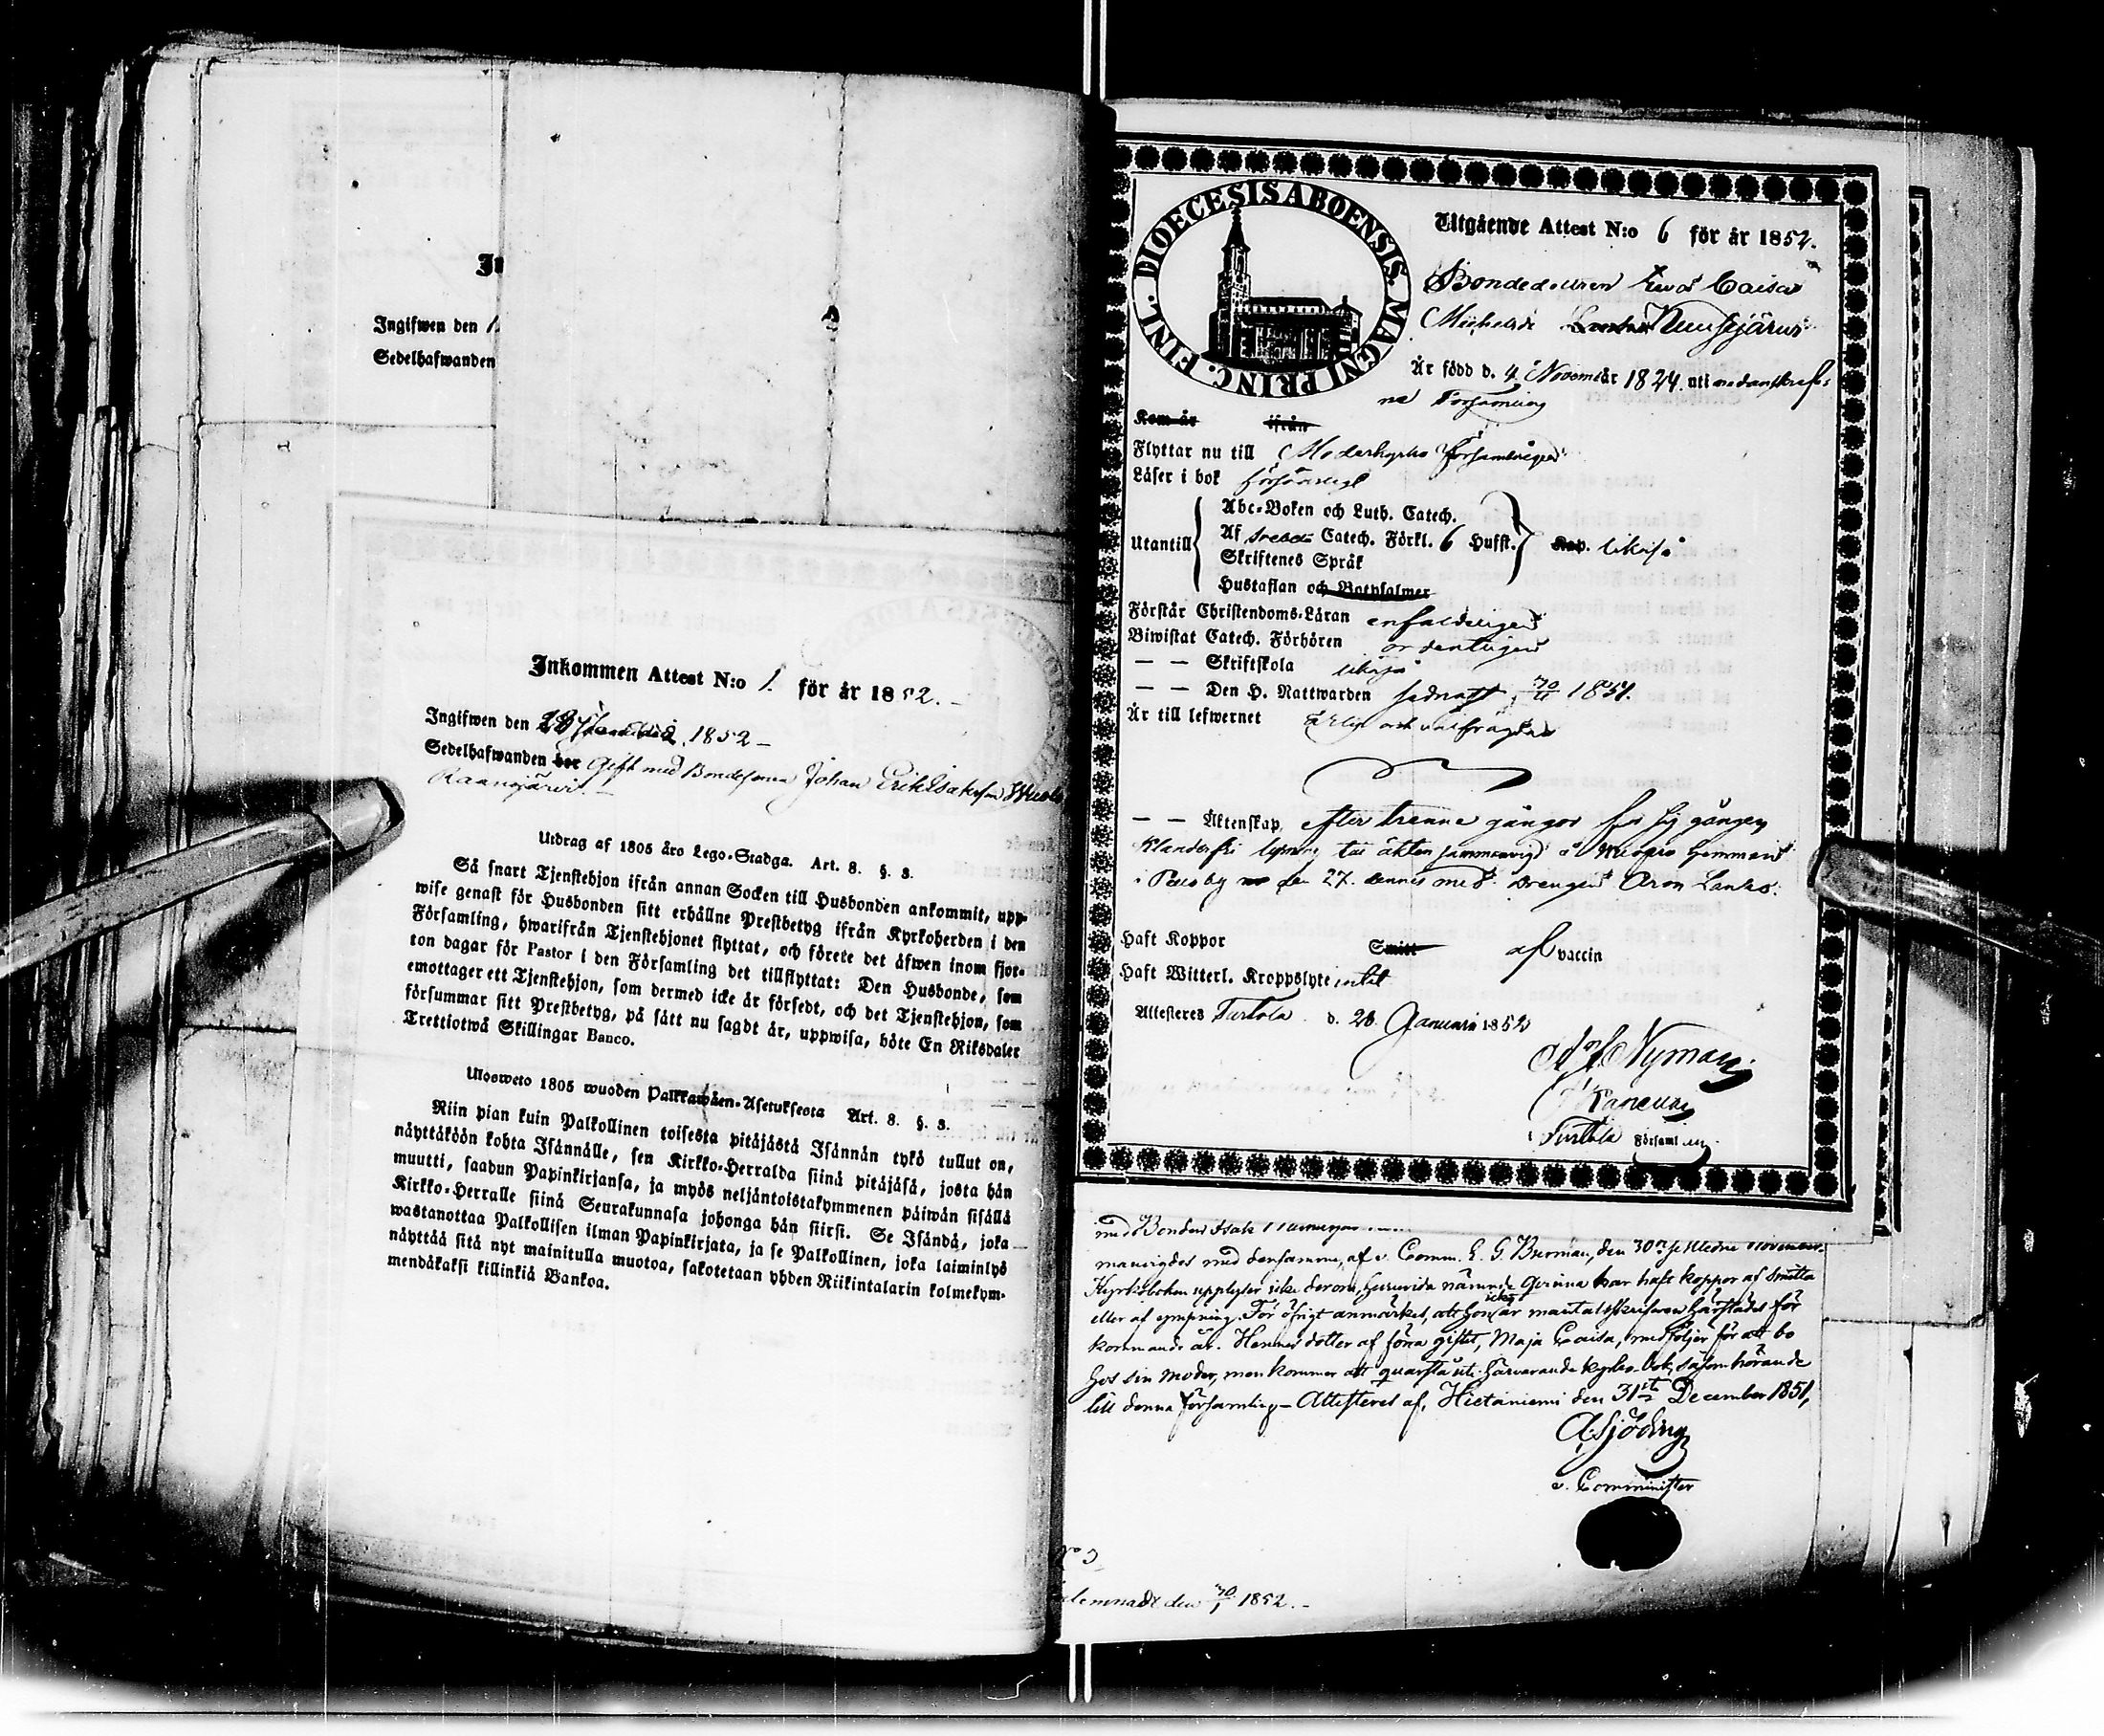 In
Ingifwen den 1
Sedelhafwanden
Inkommen Attest N:o 1. för år 1852.
Ingifwen den 28 Januarii 1852
Sedelhafwanden bor Gift med Bondesonen Johan Erik Isaksson
Kaanojärvi
Utdrag af 1805 års Lego-Stadga. Art. 8. §. 3.
Så snart Tjenstehjon ifrån annan Socken till Husbonden ankommit, upp-
wise genast för Husbonden sitt erhållne Prestbetyg ifrån Kyrkoherden i den
Församling, hwarifrån Tjenstehjonet flyttat, och förete det äfwen inom fjor-
ton dagar för Pastor i den Församling det tillflyttat: Den Husbonde, som
emottager ett Tjenstehjon, som dermed icke är försedt, och det Tjenstehjon, som
försummar sitt Prestbetyg, på sätt nu sagdt är, uppwisa, böte En Riksdaler
Trettiotwå Skillingar Banco.
Ulosweto 1805 wuoden Palkkawäen-Asetuksesta Art. 8. §. 3.
Niin pian kuin Palkollinen toisesta pitäjästä Isännän tykö tullut on,
näyttäköön kohta Isännälle, sen Kirkko-Herralda siinä pitäjäsä, josta hän
muutti, saadun Papinkirjansa, ja myös neljäntoistakymmenen päiwän sisällä
Kirkko-Herralle siinä Seurakunnasa johonga hän siirsi. Se Isändä, joka
wastanottaa Palkollisen ilman Papinkirjata, ja se Palkollinen, joka laiminlyö
näyttää sitä nyt mainitulla muotoa, sakotetaan yhden Riikintalarin kolmekym-
mendäkaksi killinkiä Bankoa.
DIOECESIS ABOENSIS. MAGNI PRINC. FINL.
Utgående Attest N:o 6 för år 1852.
Bondedottren Eva Caisa
Michelsdr
Är född d. 4 Novem är 1824. uti nedanskref-
na Församling
Kom år ifrån
Flyttar nu till Moderkyrko församlingen
Läser i bok försvarligt
Utantill
Abc-Boken och Luth. Catech.
Af Svebelii Catech. Förkl. 6 Hufst.
Skriftenes Språk
Hustaflan och Botpsalmer
Kap. likaså
Förstår Christendoms-Läran enfaldeligen
Biwistat Catech. Förhören ordentligen
— — Skriftskola likaså
— — Den H. Nattwarden sednast 30/11 1851.
Är till lefwernet ärlig och välfrägdad
— — Äktenskap, efter trenne gångor för sig gången
klanderfri lysning till äkten sammanvigd å hemman
i by den 27. dennes med drengen Aron Lanko.
Haft Koppor Smitt af vaccin
Haft Witterl. Kroppslyte intet
Attesteres Turtola d. 28. Januarii 1852
Adolf Nyman
Kapellan
i Turtola Församling
med Bonden Isak
manvigdes med densamme, af v. Comm. E. G. Burman, den 30de sistledne November.
Kyrkoboken upplyser icke derom, huruvida nämnde Qvinna har haft koppor af smitta
eller af ympning. För öfrigt anmärkes, att hon icke är mantalsskrifven härstädes för
kommande år. Hennes dotter af förra giftet, Maja Caisa, medföljer för att bo
hos sin moder, men kommer att qvarstå uti härvarande kyrko-bok, såsom hörande
till denna församling — Attesteres af, Hietaniemi den 31ste December 1851,
A. Sjöding
v. Comminister
No 3
lemnadt den 30/1 1852.